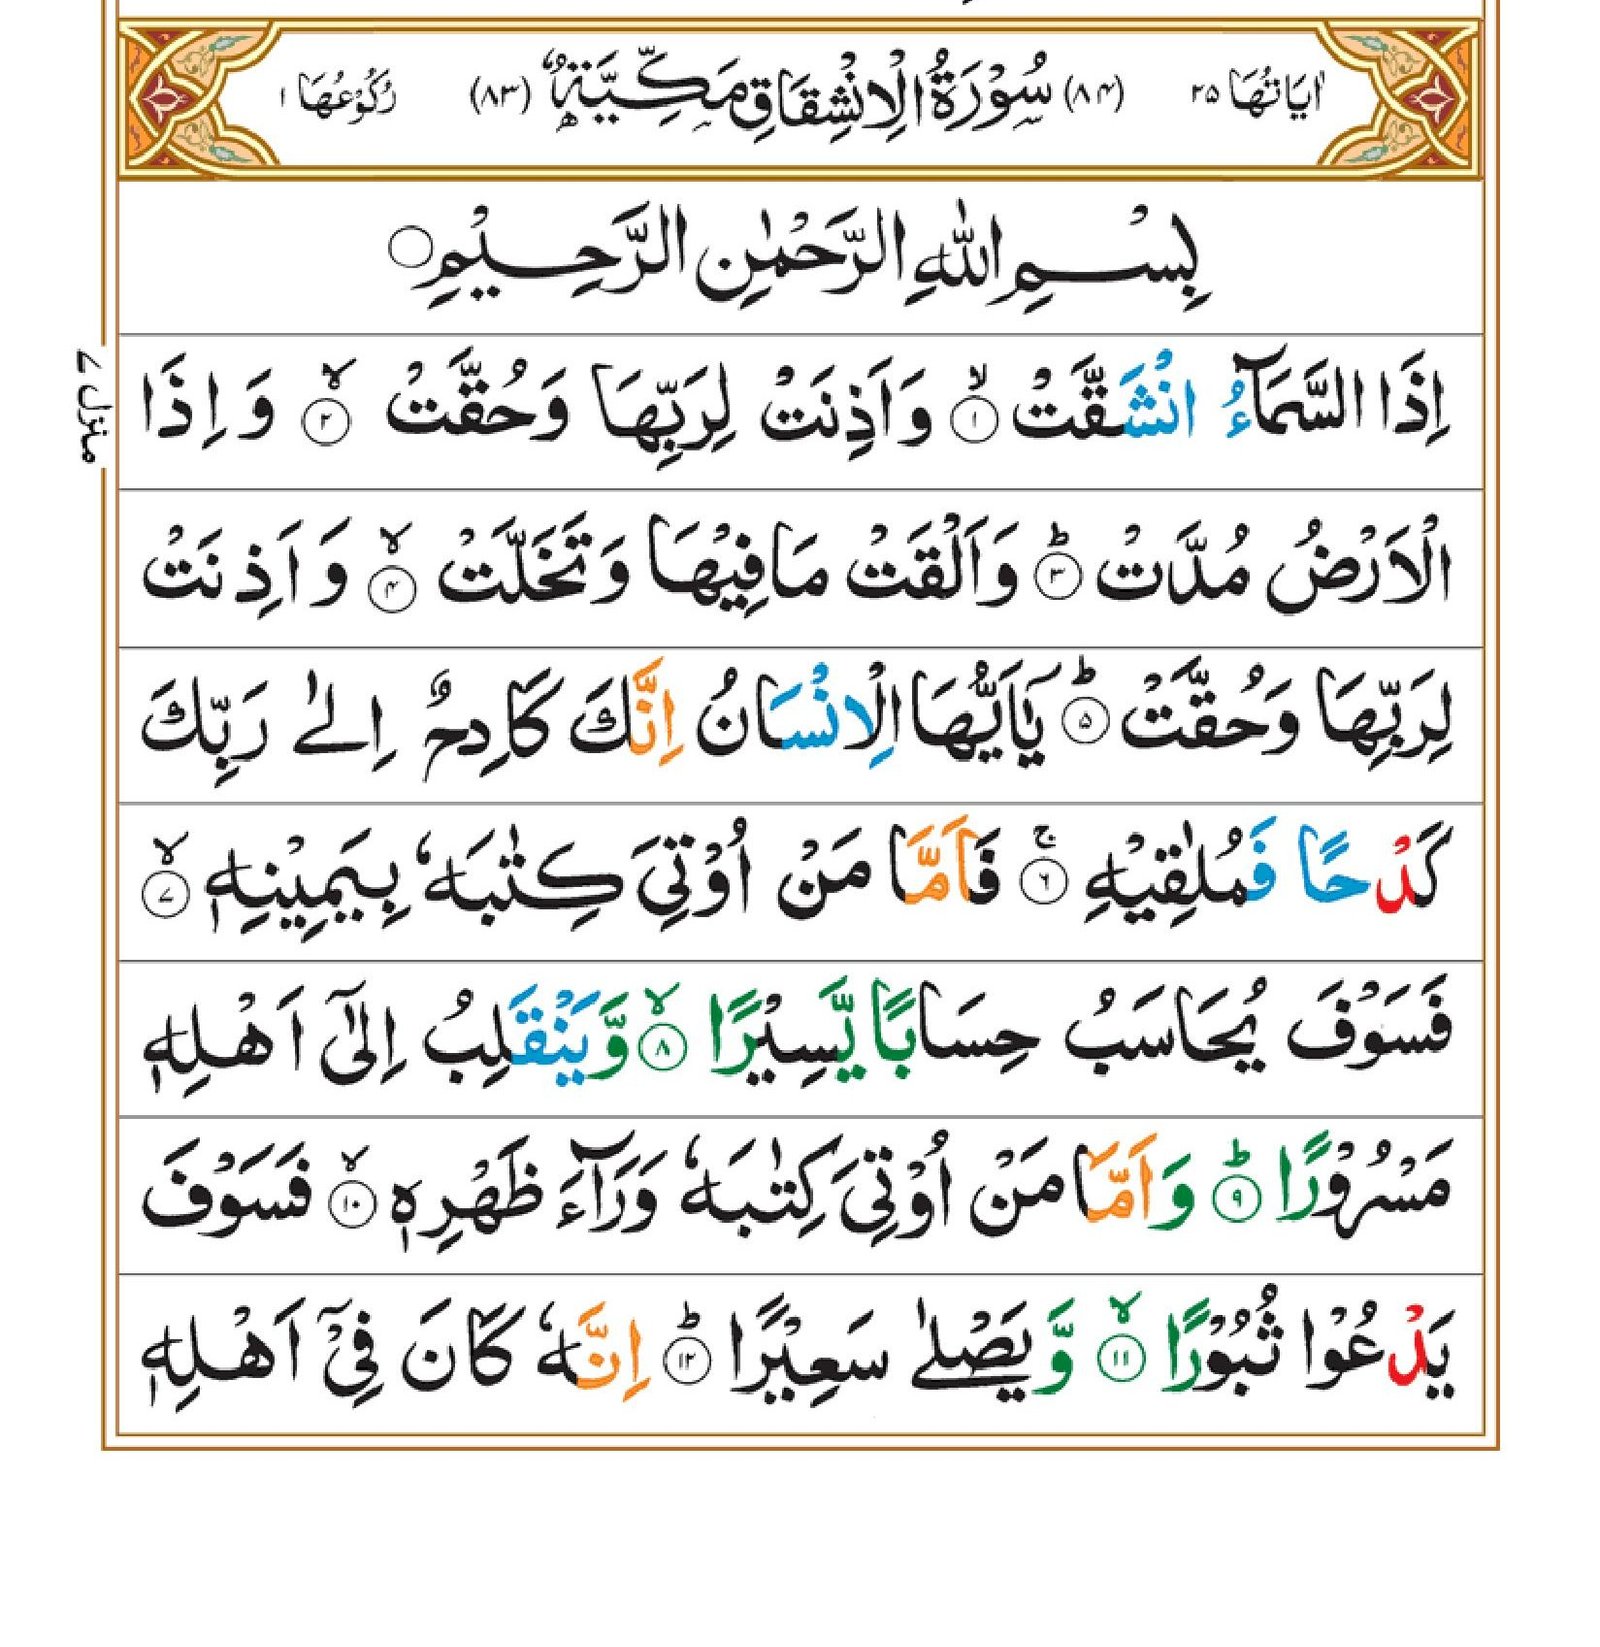 اٰيَاتُهَا ٢٥ (٨٤) سُوْرَةُ الْاِنْشِقَاقِ مَكِّيَّةٌ (٨٣) رُكُوْعُهَا ١
بِسْمِ اللّٰهِ الرَّحْمٰنِ الرَّحِيْمِ
اِذَا السَّمَآءُ انْشَقَّتْ ۙ﴿١﴾ وَاَذِنَتْ لِرَبِّهَا وَحُقَّتْ ۙ﴿٢﴾ وَاِذَا
منزل ٧
الْاَرْضُ مُدَّتْ ؕ﴿٣﴾ وَاَلْقَتْ مَا فِيْهَا وَتَخَلَّتْ ۙ﴿٤﴾ وَاَذِنَتْ
لِرَبِّهَا وَحُقَّتْ ؕ﴿٥﴾ يٰۤاَيُّهَا الْاِنْسَانُ اِنَّكَ كَادِحٌ اِلٰى رَبِّكَ
كَدْحًا فَمُلٰقِيْهِ ۚ﴿٦﴾ فَاَمَّا مَنْ اُوْتِيَ كِتٰبَهٗ بِيَمِيْنِهٖ ۙ﴿٧﴾
فَسَوْفَ يُحَاسَبُ حِسَابًا يَّسِيْرًا ۙ﴿٨﴾ وَّيَنْقَلِبُ اِلٰٓى اَهْلِهٖ
مَسْرُوْرًا ؕ﴿٩﴾ وَاَمَّا مَنْ اُوْتِيَ كِتٰبَهٗ وَرَآءَ ظَهْرِهٖ ۙ﴿١٠﴾ فَسَوْفَ
يَدْعُوْا ثُبُوْرًا ۙ﴿١١﴾ وَّيَصْلٰى سَعِيْرًا ؕ﴿١٢﴾ اِنَّهٗ كَانَ فِيْۤ اَهْلِهٖ